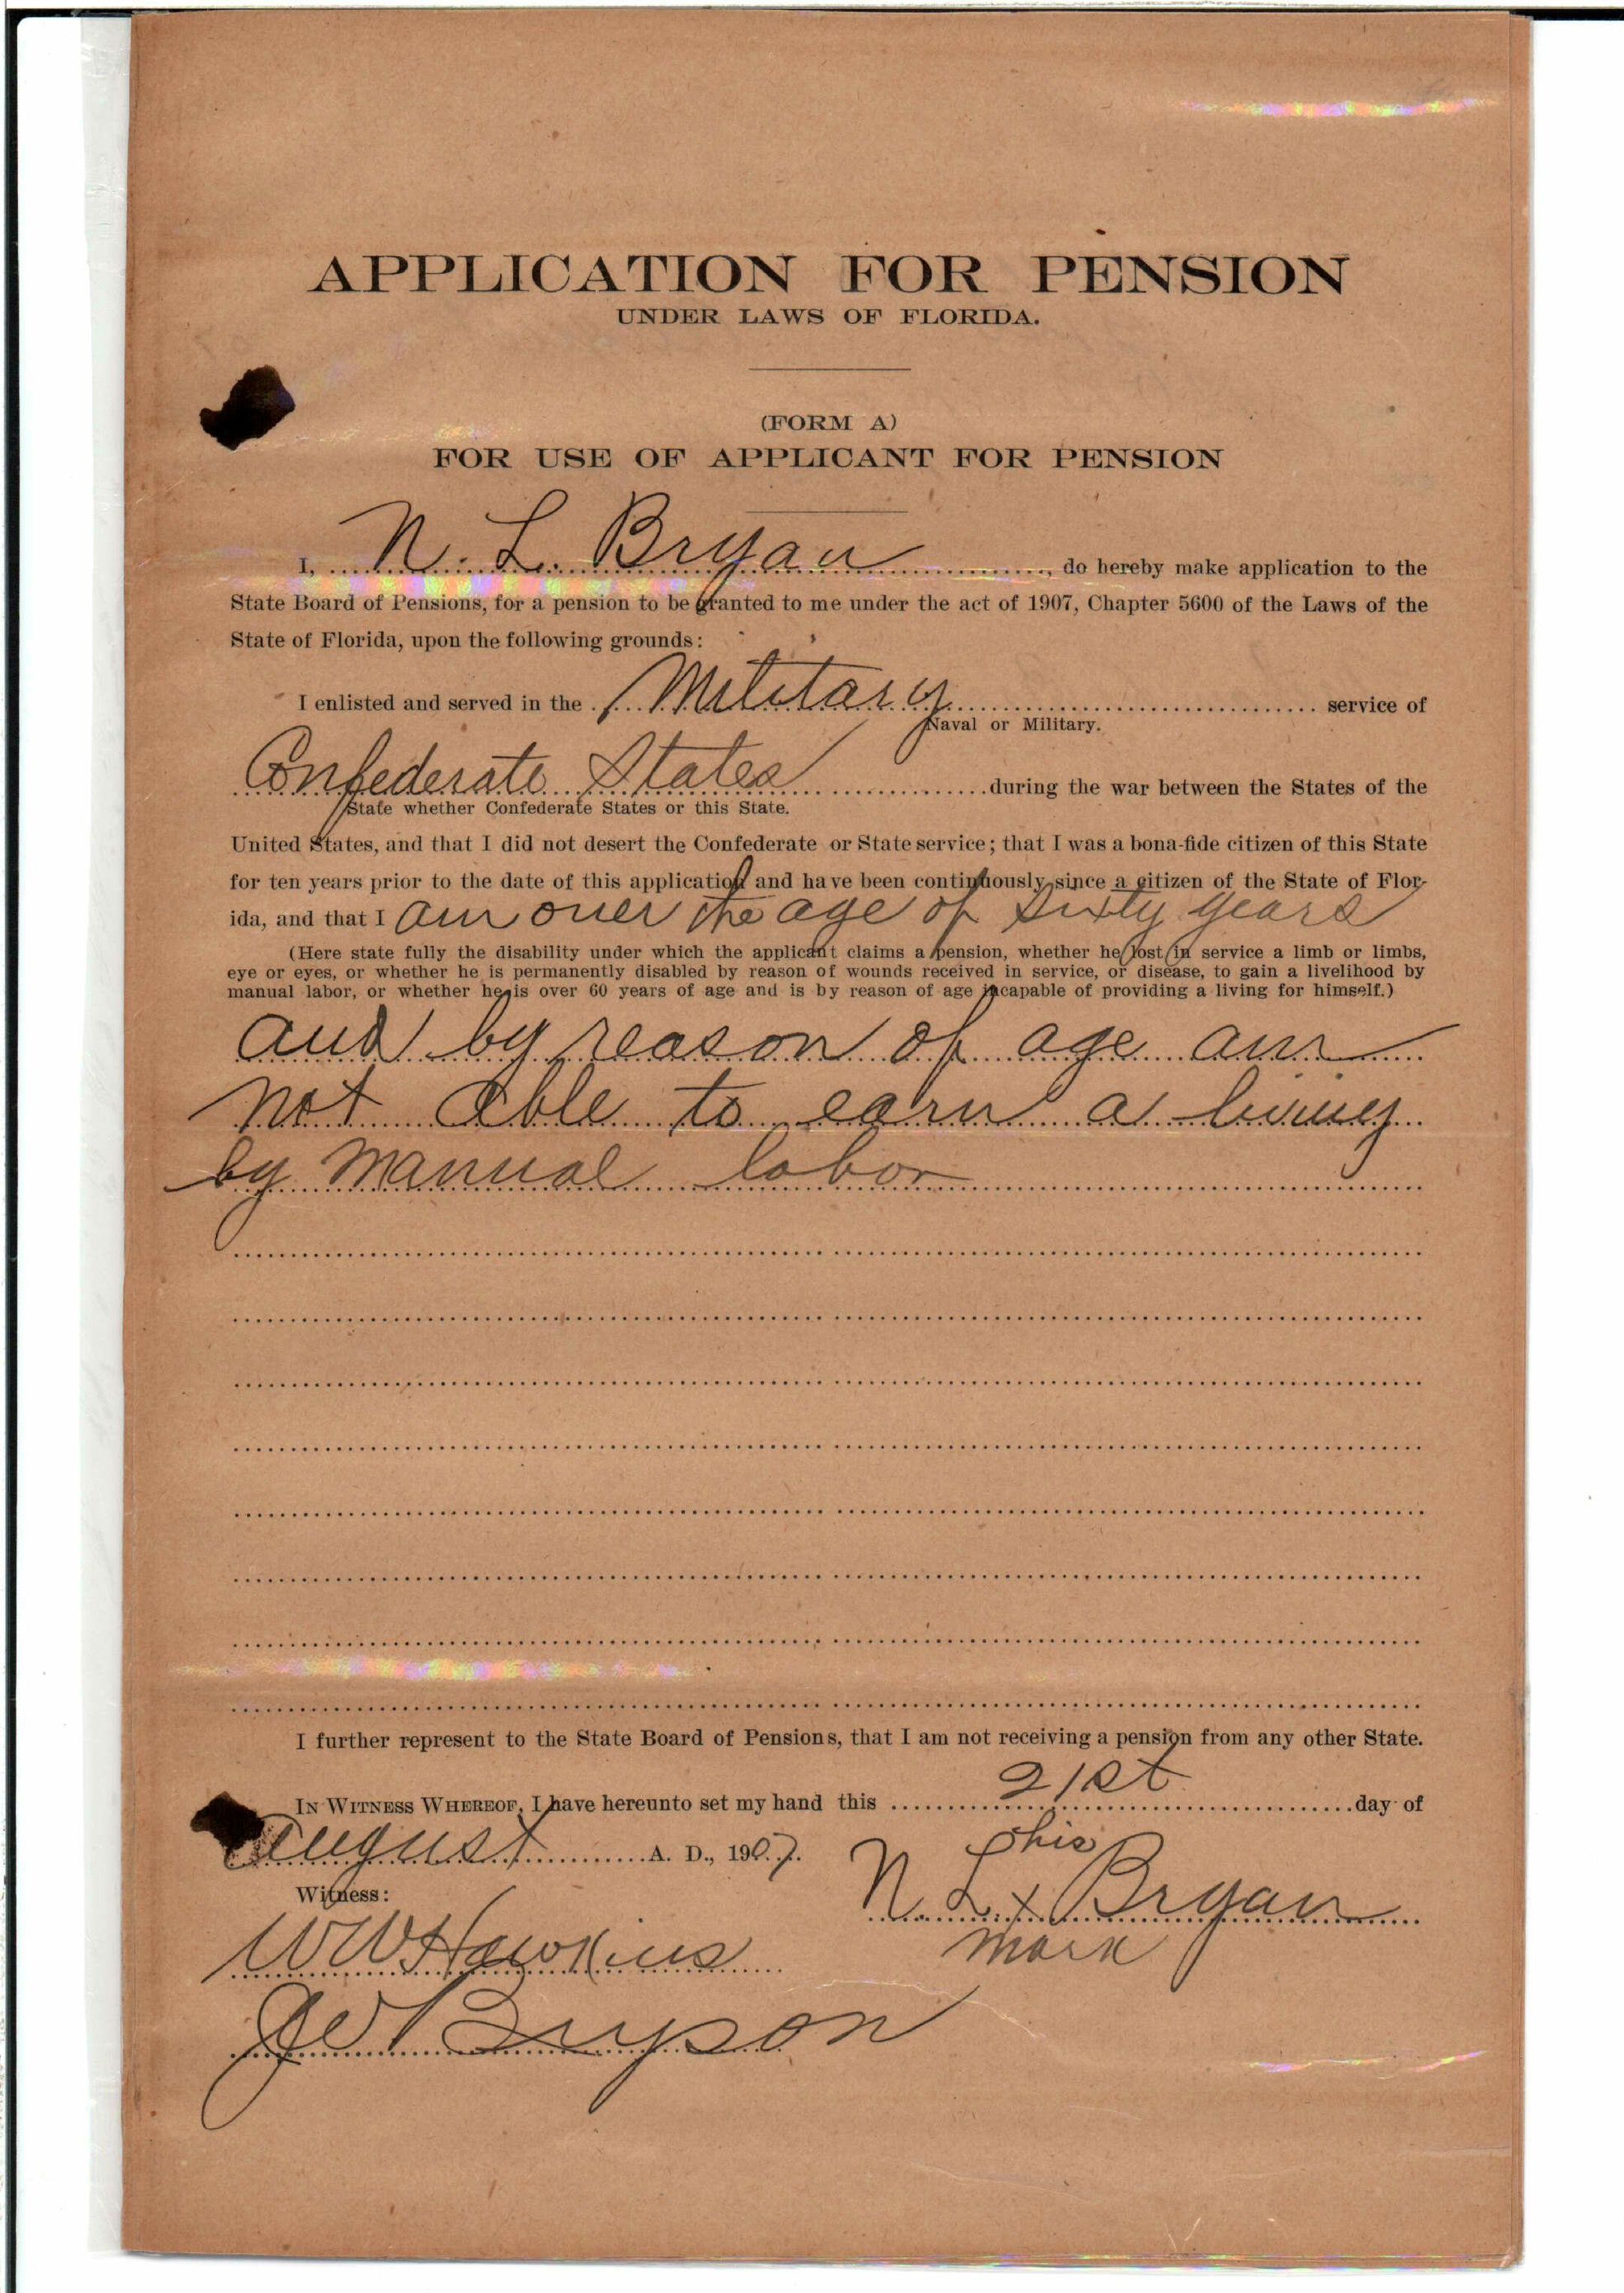 APPLICATION FOR PENSION
UNDER LAWS OF FLORIDA.
(FORM A)
FOR USE OF APPLICANT FOR PENSION
I, N. L. Bryan, do hereby make application to the
State Board of Pensions, for a pension to be granted to me under the act of 1907, Chapter 5600 of the Laws of the
State of Florida, upon the following grounds:
I enlisted and served in the Military service of
Naval or Military.
Confederate States during the war between the States of the
State whether Confederate States or this State.
United States, and that I did not desert the Confederate or State service; that I was a bona-fide citizen of this State
for ten years prior to the date of this application and have been continuously since a citizen of the State of Flor-
ida, and that I am over the age of sixty years
(Here state fully the disability under which the applicant claims a pension, whether he lost in service a limb or limbs,
eye or eyes, or whether he is permanently disabled by reason of wounds received in service, or disease, to gain a livelihood by
manual labor, or whether he is over 60 years of age and is by reason of age incapable of providing a living for himself.)
and by reason of age am
not able to earn a living
by manual labor
I further represent to the State Board of Pensions, that I am not receiving a pension from any other State.
IN WITNESS WHEREOF, I have hereunto set my hand this 21st day of
August A. D., 1907.
his
Witness:
N. L. x Bryan
mark
WW Hawkins
JW Bryson